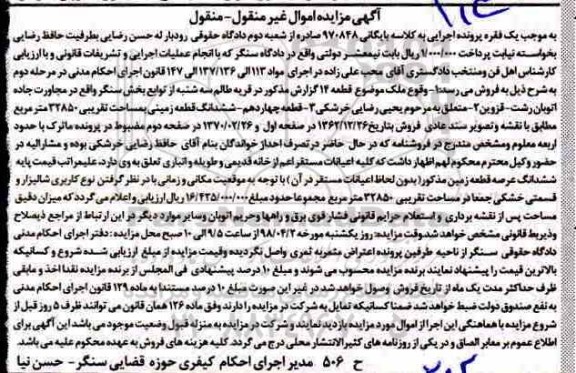 آگهی مزایده اموال غیر منقول-منقول
به موجب یک فقره پرونده اجرایی به کلاسه بایگانی ۹۷۰۸۴۸ صادره از شعبه دوم دادگاه حقوقی رودبار له حسن رضایی بطرفیت حافظ رضایی
بخواسته نیابت پرداخت ریال بابت نیمعشر دولتی واقع در دادگاه سنگر که با انجام عملیات اجرایی و تشریفات قانونی و با ارزیابی
کارشناس اهل فن ومنتخب دادگستری آقای محب علی زاده در اجرای مواد ۱۱۳ الی ۱۳۷/۱۳۶ الی ۱۴۷ قانون اجرای احکام مدنی در مرحله دوم
به شرح ذیل به فروش می رسد:۱-وقوع ملک موضوع قطعه ۱۴ گزارش مذکور در قریه طالم سه شنبه از توابع بخش سنگر واقع در مجاورت جاده
اتوبان رشت-قزوین ۲-متعلق به مرحوم یحیی رضایی خرشکی ۳-قطعه چهاردهم-ششدانگ قطعه زمینی بمساحت تقریبی ۳۲۸۵۰ متر مربع
مطابق با نقشه و تصویر سند عادی فروش بتاریخ ۱۳۶۲/۱۲/۲۶ در صفحه اول و ۱۳۷۰/۰۲/۲۶ در صفحه دوم مضبوط در پرونده ماترک با حدود
اربعه معلوم ومشخص مندرج در فروشنامه که در حال حاضر در تصرف احداز خواندگان بنام آقای حافظ رضایی خرشکی بوده و مشارالیه در
حضور وکیل محترم محکوم لهم اظهار داشت که کلیه اعیانات مستقر اعم از خانه قدیمی و طویله و انباری تعلق به وی دارد، علیهمراتب قیمت پایه
ششدانگ عرصه قطعه زمین مذکور(بدون لحاظ اعیانات مستقر در آن ) با توجه به موقعیت مکانی و زمانی با در نظر گرفتن نوع کاربری شالیزار و
قسمتی خشکی جمعا در مساحت تقریبی ۳۲۸۵۰ متر مربع مجموعا حدود مبلغ ۱۶/۴۲۵/۰۰۰/۰۰۰ ریال ارزیابی و اعلام می گردد که میزان دقیق
مساحت پس از نقشه برداری و استعلام حرایم قانونی فشار قوی برق و راهها وحریم اتوبان وسایر موارد دیگر در این ارتباط از مراجع ذیصلاح
وذیربط قانونی مشخص خواهد شد.وقت مزایده: روز یکشنبه مورخه ۹۸/۰۴/۲ از ساعت ۹/۵ الی ۱۰ صبح محل مزایده : دفتر اجرای احکام مدنی
دادگاه حقوقی سنگر از ناحیه طرفین پرونده اعتراض مثمربه ثمری واصل نگردیده وقیمت مزایده از مبلغ ارزیابی شده شروع و کسانیکه
بالاترین قیمت را پیشنهاد نمایند برنده مزایده محسوب می شوند و مبلغ ۱۰ درصد پیشنهادی فی المجلس از برنده مزایده نقدا اخذ و مابقی
ظرف حداکثر مدت یک ماه از تاریخ فروش وصول خواهد شد در غیر این صورت مبلغ ۱۰ درصد مستندا به ماده ۱۲۹ قانون اجرای احکام مدنی
به نفع صندوق دولت ضبط خواهد شد ضمنا کسانیکه تمایل به شرکت در مزایده را دارند وفق ماده ۱۲۶ همان قانون می توانند ظرف ۵ روز قبل از
شروع مزایده با هماهنگی این اجرا از اموال مورد مزایده بازدید نمایند و شرکت در مزایده به منزله قبول وضعیت موجود می باشد این آگهی برای
اطلاع عموم بر معابر الصاق و در یکی از روزنامه های کثیرالانتشار محلی درج می گردد. کلیه هزینه های فروش به عهده محکوم علیه می باشد.
ح ۵۰۶ مدیر اجرای احکام کیفری حوزه قضایی سنگر - حسن نیا